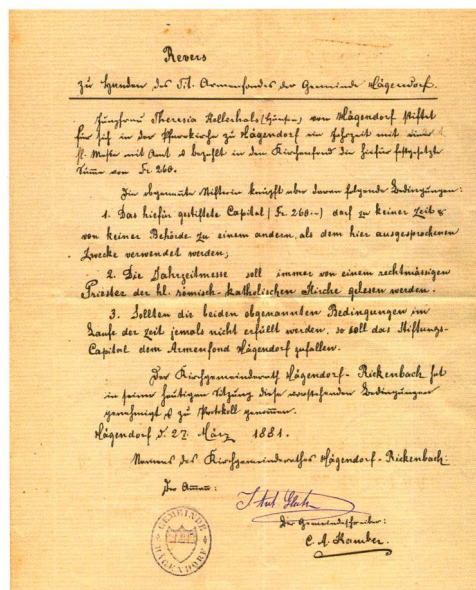 Revers
zu Handen des Tit. Armenfondes der Gemeinde Hägendorf.
Jungfrau Theresia Kellerhals (Hansen) von Hägendorf stiftet
für sich in der Pfarrkirche zu Hägendorf ein Jahrzeit mit
hl. Messe mit Amt & bezahlt in den Kirchenfond die hiefür festgesetzte
Summe von Fr. 260.
Die obgenannte Stifterin knüpft aber daran folgende Bedingungen:
1. Das hiefür gestiftete Capital (Fr. 260.--) darf zu keiner Zeit &
von keiner Behörde zu einem andern, als dem hier ausgesprochenen
Zwecke verwendet werden;
2. Die Jahrzeitmesse soll immer von einem rechtmässigen
Priester der hl. römisch-katholischen Kirche gelesen werden.
3. Sollten die beiden obgenannten Bedingungen im
Laufe der Zeit jemals nicht erfüllt werden, so soll das Stiftungs-
Capital dem Armenfond Hägendorf zufallen.
Der Kirchgemeinderath Hägendorf-Rickenbach hat
in seiner heutigen Sitzung diese vorstehenden Bedingungen
genehmigt & zu Protokoll genommen.
Hägendorf d. 27. März 1881.
Namens des Kirchgemeinderathes Hägendorf-Rickenbach:
Der Amman:
Der Gemeindschreiber:
C. A. Kamber.
GEMEINDE
HÄGENDORF